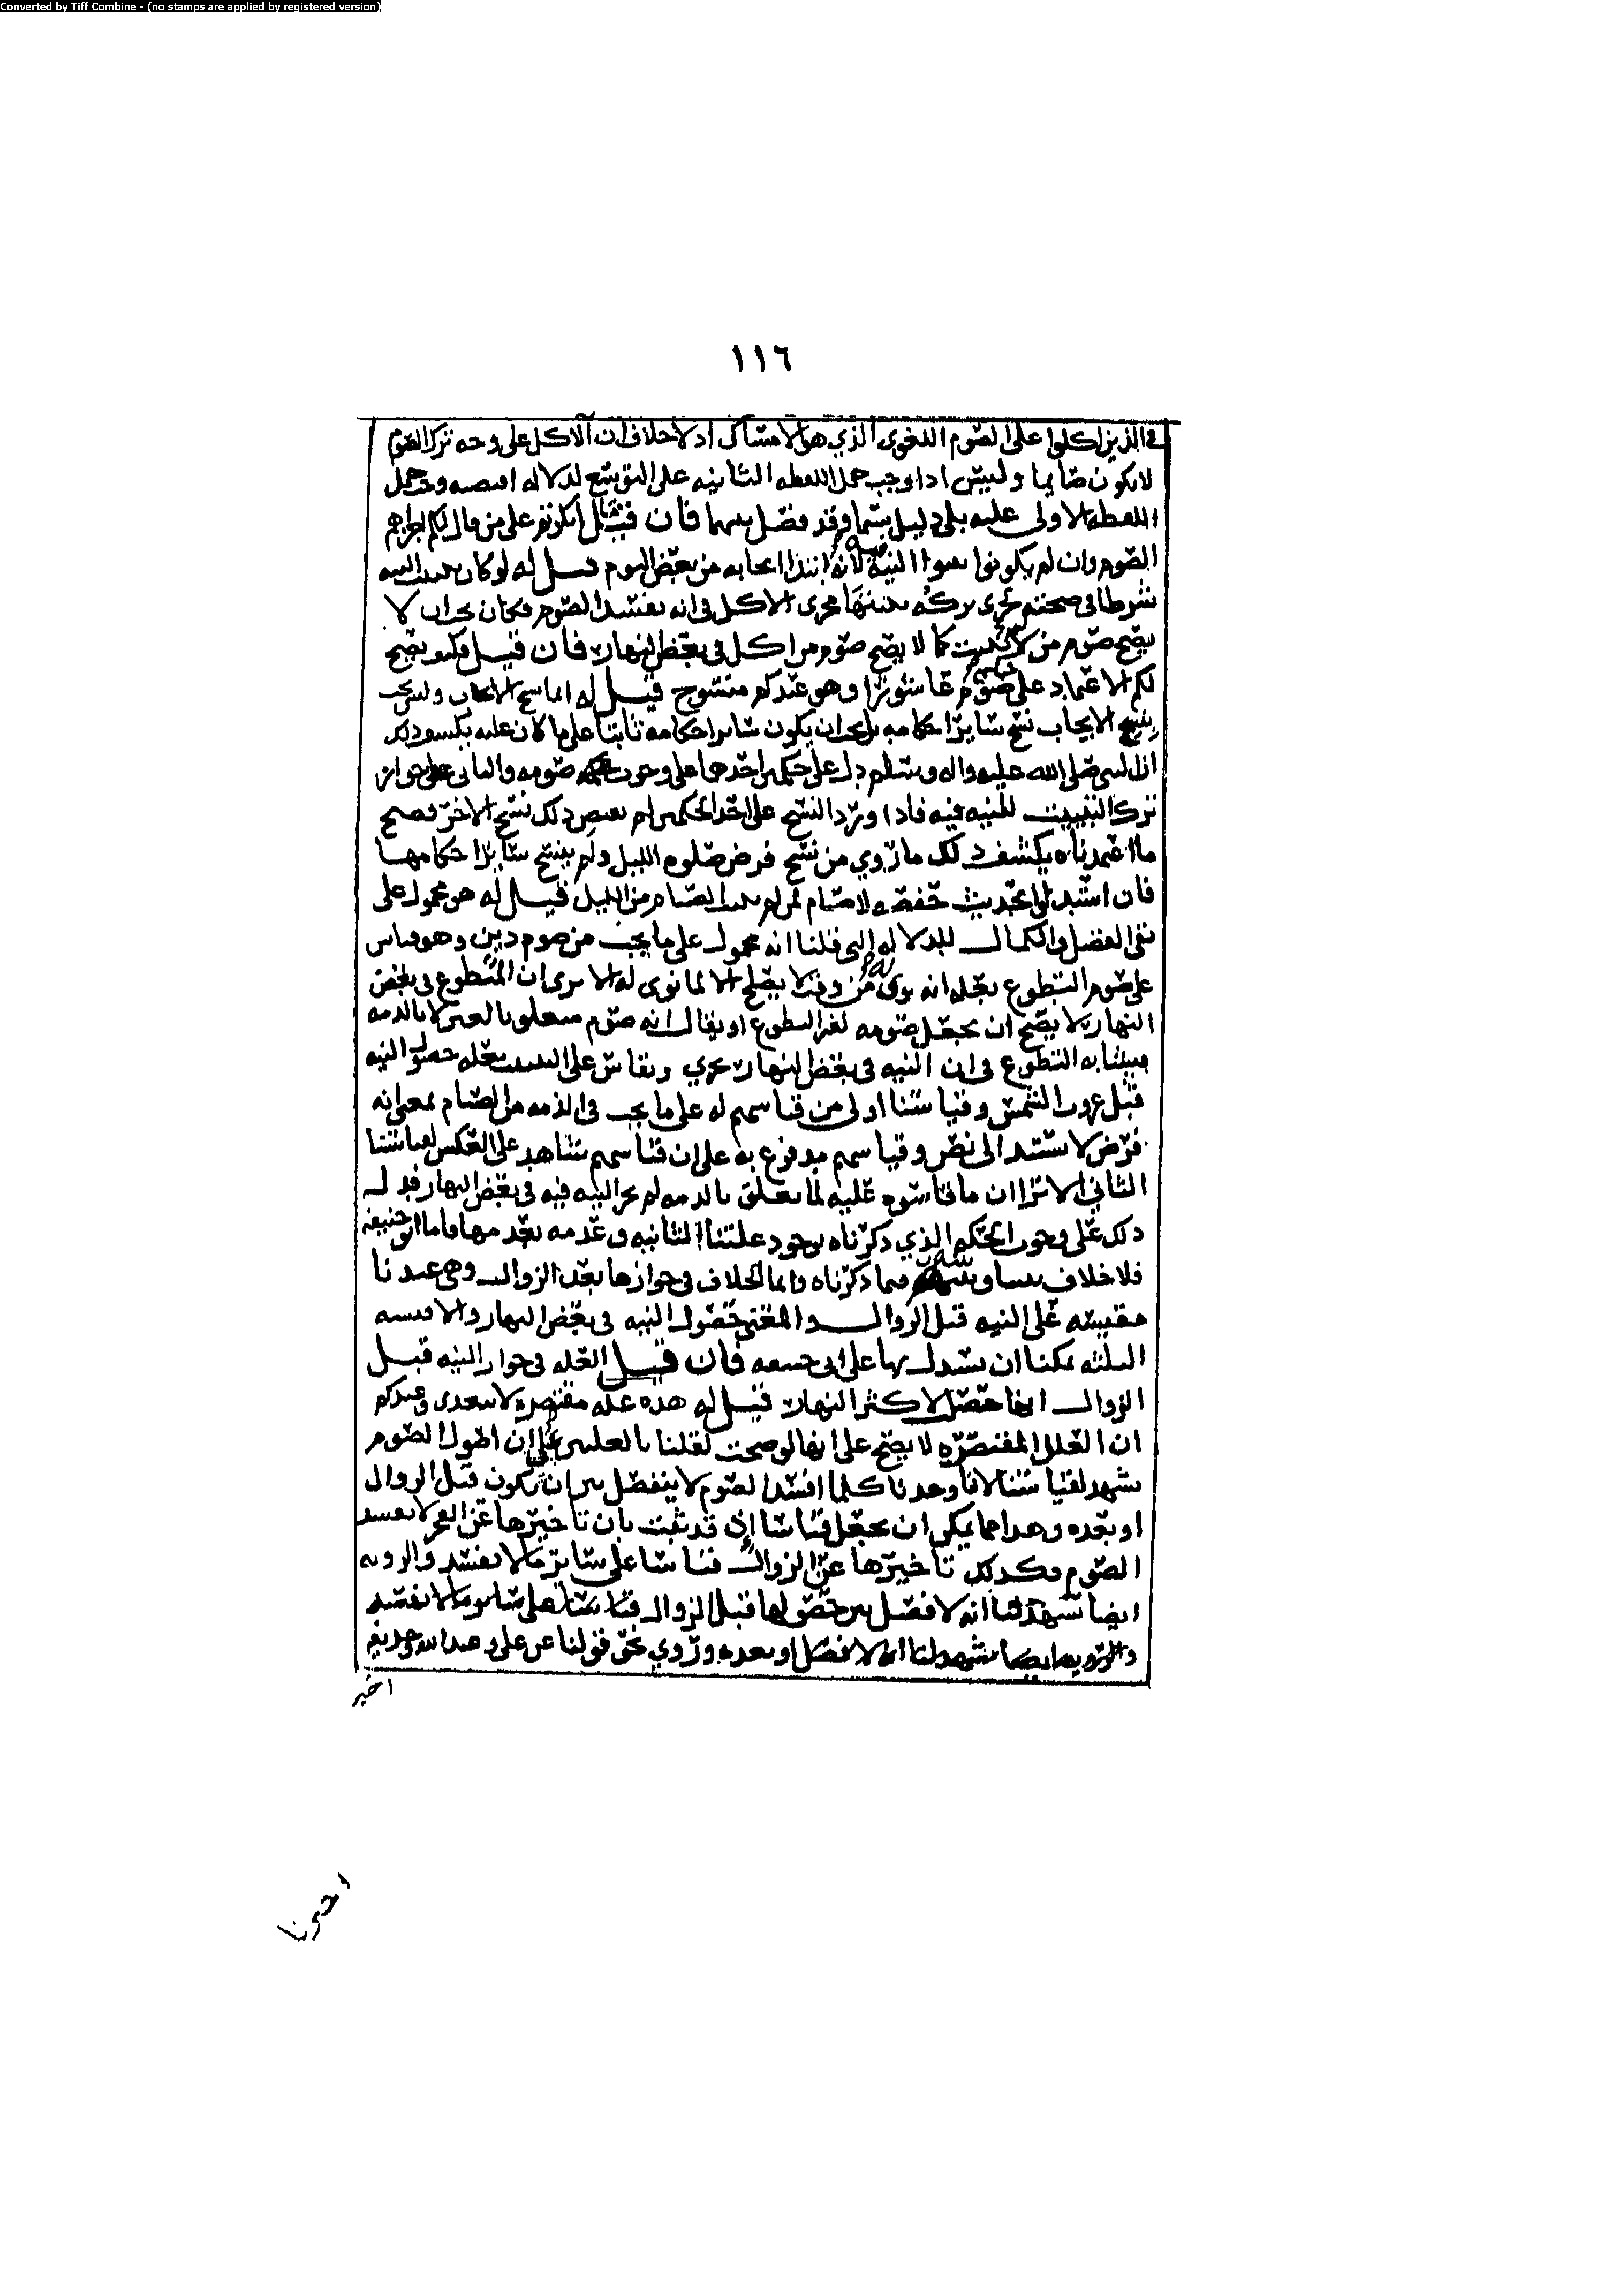 Converted by Tiff Combine - (no stamps are applied by registered version)
١١٦
في الذين اكلوا على الصوم اللغوي الذي هو الامساك اذ لا خلاف ان الاكل على وجه ترك الصوم
لا يكون صايما وليس اذا وجب حمل اللفظه الثانيه على التوسع لدلاله وجب حمل
اللفظه الاولى عليه بلا دليل سيما وقد فصل بينهما فان قيل ما انكرتم على من قال لكم اجزاهم
الصوم وان لم يكونوا بيتوا النية لانه ابتدا ايجابه من بعض اليوم قيل له لو كان تبييت النيه
شرطا في صحته جرى تركه مجرى الاكل في انه يفسد الصوم فكان يجب ان لا
يصح صوم من لم يبيت كما لا يصح صوم من اكل في بعض النهار فان قيل فكيف يصح
لكم الاعتماد على صوم عاشورا وهو عندكم منسوخ قيل له انما نسخ الايجاب وليس يجب
بنسخ الايجاب نسخ سايرا حكامه بل يجب ان يكون سايرا حكامه ثابتا على ما كان عليه يكشف ذلك
ان النبي صلى الله عليه واله وسلم دل على حكمين احدهما على وجوب صومه والثاني على جواز
ترك التبييت للنيه فيه فاذا ورد النسخ على احد الحكمين لم يقتض ذلك نسخ الاخر فصح
ما اعتمدناه يكشف ذلك ما روي من نسخ فرض صلوه الليل ولم ينسخ سايرا حكامها
فان استدلوا بحديث حفصه لا صيام لمن لم الصيام من الليل قيل له هو محمول على
نفي الفضل والكمال للدلاله التي قلنا انه محمول على ما يجب من صوم دين وهو قياس
على صوم التطوع بعله انه نوى من وقت لا يصلح الا لما نوى له الا ترى ان المتطوع في بعض
النهار لا يصح ان يجعل صومه لغير التطوع او يقال انه صوم متعلق بالعين لا بالذمه
فيشابه التطوع في ان النيه في بعض النهار تجزي ويقاس على التبييت بعله حصول النيه
قبل غروب الشمس وقياسنا اولى من قياسهم له على ما يجب في الذمه من الصيام بمعنى انه
فرض لا يستند الى نص وقياسهم مدفوع به على ان قياسهم شاهد على العكس لقياسنا
الثاني الا ترا ان ما قاسوه عليه لما تعلق بالذمه لم تجز النيه فيه في بعض النهار فدل
ذلك على وجود الحكم الذي ذكرناه بوجود علتنا الثانيه وعدمه بعدمها فاما ابو حنيفه
فلا خلاف بيننا وبينه فيما ذكرناه وانما الخلاف في جوازها بعد الزوال وهي عندنا
مقيسه على النيه قبل الزوال والمعنى حصول النيه في بعض النهار والاقيسه
الثلثه يمكننا ان نستدل بها على ابي حنيفه فان قيل العله في جواز النيه قبل
الزوال انها حصلت لاكثر النهار قيل له هذه عله مقتصره لا تتعدى وعندكم
ان العلل المقتصره لا يصح على انها لو صحت لقلنا بالعلتين على ان اصول الصوم
تشهد لقياسنا لانا وجدنا كلما افسد الصوم لا ينفصل بين ان يكون قبل الزوال
او بعده وهذا مما يمكن ان يجعل قياسا اذ قد ثبت بان تاخيرها عن الفجر لا يفسد
الصوم فكذلك تاخيرها عن الزوال قياسا على ساير ما لا يفسد والرويه
ايضا تشهد لنا انه لا فصل بين حصولها قبل الزوال قياسا على ساير ما لا يفسد
والرويه ايضا تشهد لنا انه لا فصل او بعده وروي نحو قولنا عن علي وعبد الله وحذيفه
اخبر
اخبرنا